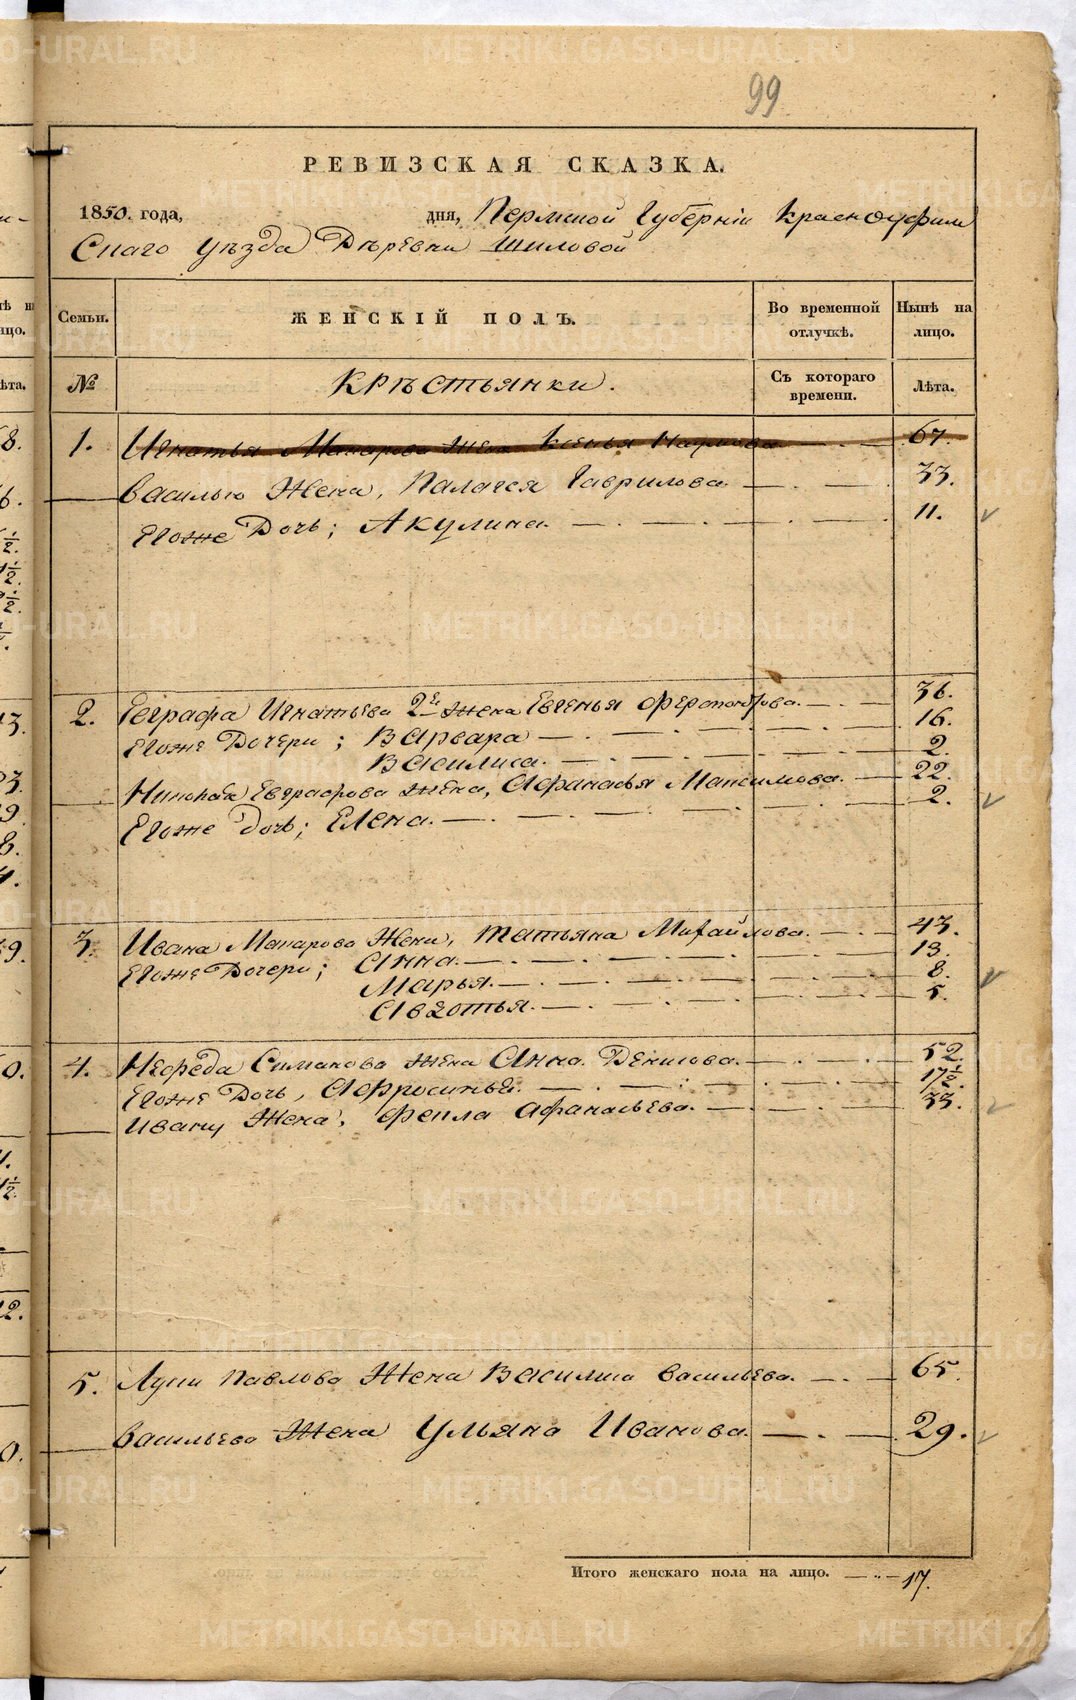 99
РЕВИЗСКАЯ СКАЗКА.
1850. года, дня, Пермской Губерніи Красноуфим
Скаго уѣзда Дѣревни Шиловой
Семьи. ЖЕНСКІЙ ПОЛЪ. Во временной отлучкѣ. Нынѣ на лицо.
№ Крѣстьянки. Съ котораго времени. Лѣта.
1. Игнатья Макарова жена Ксенья 67.
Василью Жена, Палагея Гаврилова. 33.
Егоже Дочь; Акулина. 11.
2. Игнатьева 2я жена Евгенья 36.
Егоже Дочери; Варвара 16.
Василиса. 2.
Евграфова жена, Афанасья Максимова. 22.
Егоже Дочь; Елена. 2.
3. Ивана Макарова Жена, Татьяна Михайлова. 43.
Егоже Дочери; Анна. 13.
Марья. 8.
Авдотья. 5.
4. Нефеда Симанова жена Анна Денисова. 52.
Егоже Дочь, Афросинья. 17½.
Ивану Жена, Фекла Афанасьева. 33.
5. Луки Павлова Жена Василиса Васильева. 65.
Васильева Жена Ульяна Иванова. 29.
Итого женскаго пола на лицо. 17.
METRIKI.GASO-URAL.RU